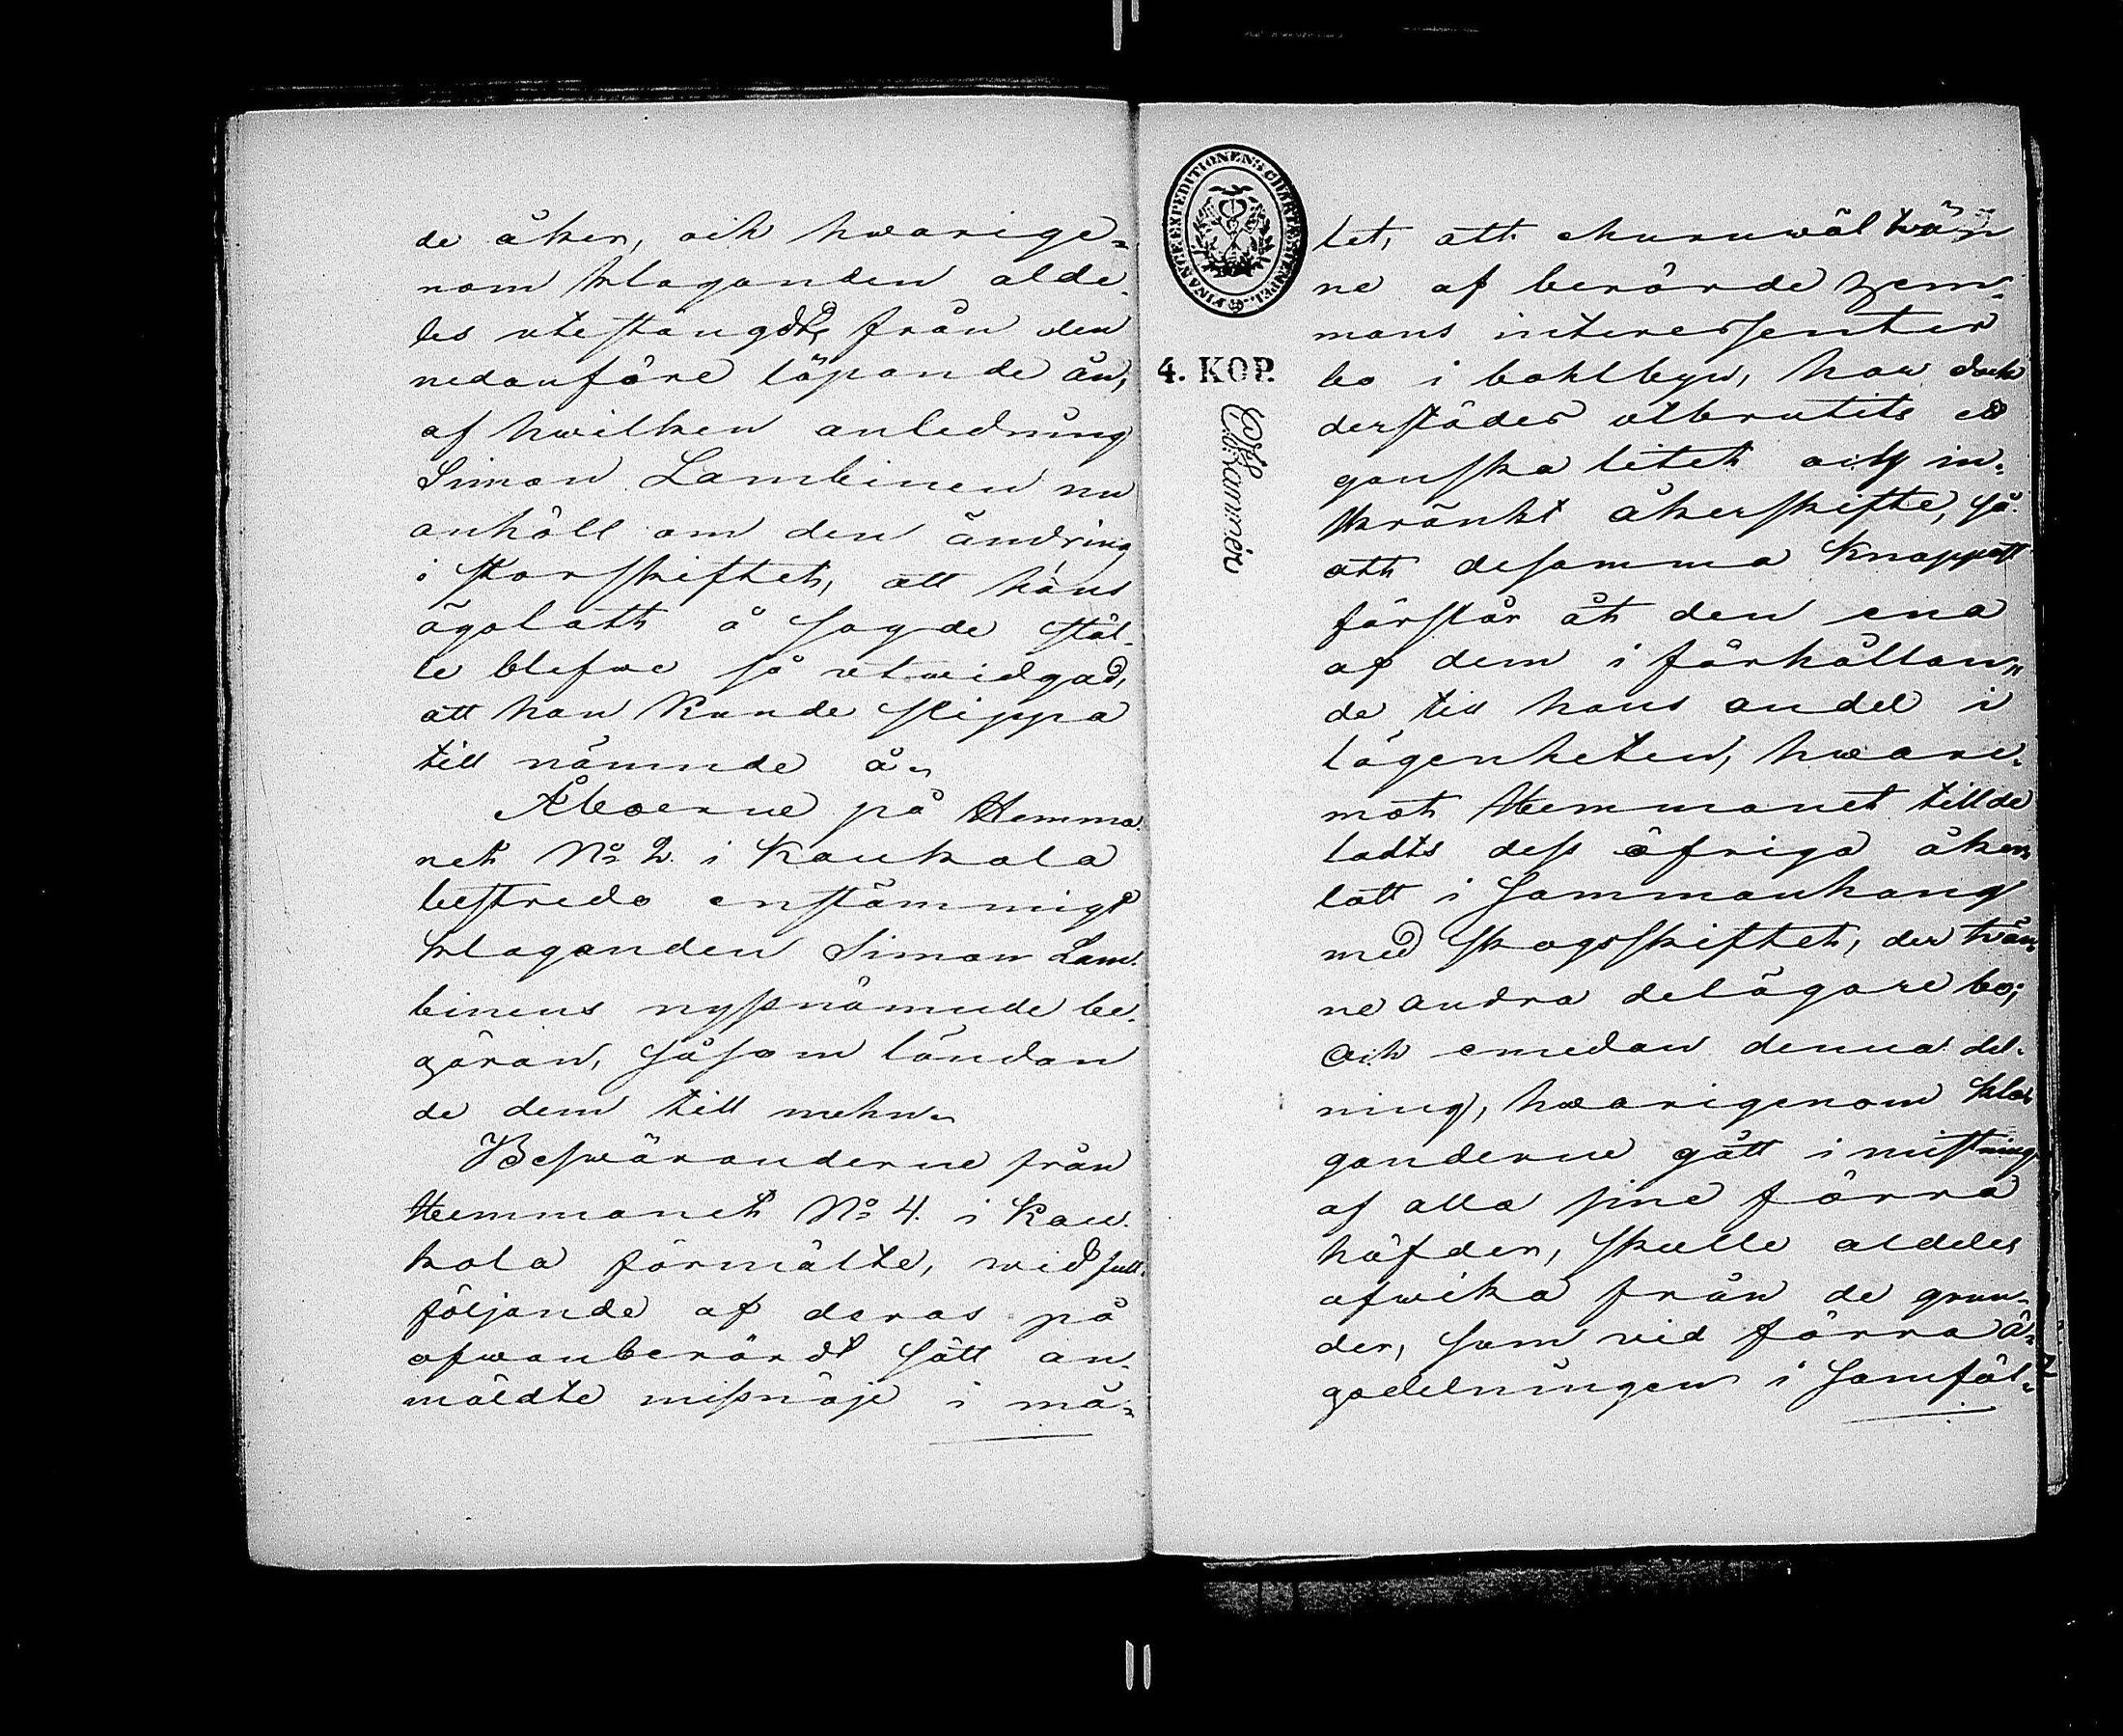 de åker, och hwarige-
nom klaganden alde-
les utestängdts från den
nedanföre löpande ån,
af hwilken anledning
Simon Lambinen nu
anhöll om den ändring
i storskiftet, att hans
ägolatt å sagde stäl-
le blefwe så utwidgad,
att han kunde slippa
till nämnde å.
Åboerne på Hemma-
net No 2. i Kaukola
bestredo enstämmigt
klaganden Simon Lam-
binens nyssnämnde be-
gäran, såsom ländan
de dem till mehn.
Beswäranderne från
Hemmanet No 4. i Kau-
kola förmälte, wid full-
följande af deras på
ofwanberördt sätt an-
mäldte missnöje i må-
FINANCE EXPEDITIONENS CHARTÆ STEMPEL
4. KOP.
let, att ehuruwäl twän
ne af berörde Hem-
mans interessenter
bo i bohlbyn, har dock
derstädes utbrutits et
ganska litet och in-
skränkt åkerskifte, så
att desamma knappast
förslår åt den ena
af dem i förhållan-
de till hans andel i
lägenheten, hware-
mot Hemmanet tillde
ladts dess öfriga åker
latt i sammanhang
med skogsskiftet, der twän
ne andra delägare bo;
Och emedan denna del-
ning, hwarigenom kla-
ganderne gått i mistning
af alla sine förra
häfder, skulle aldeles
afwika från de grun-
der, som vid förra ä-
godelningen i Samfäl-